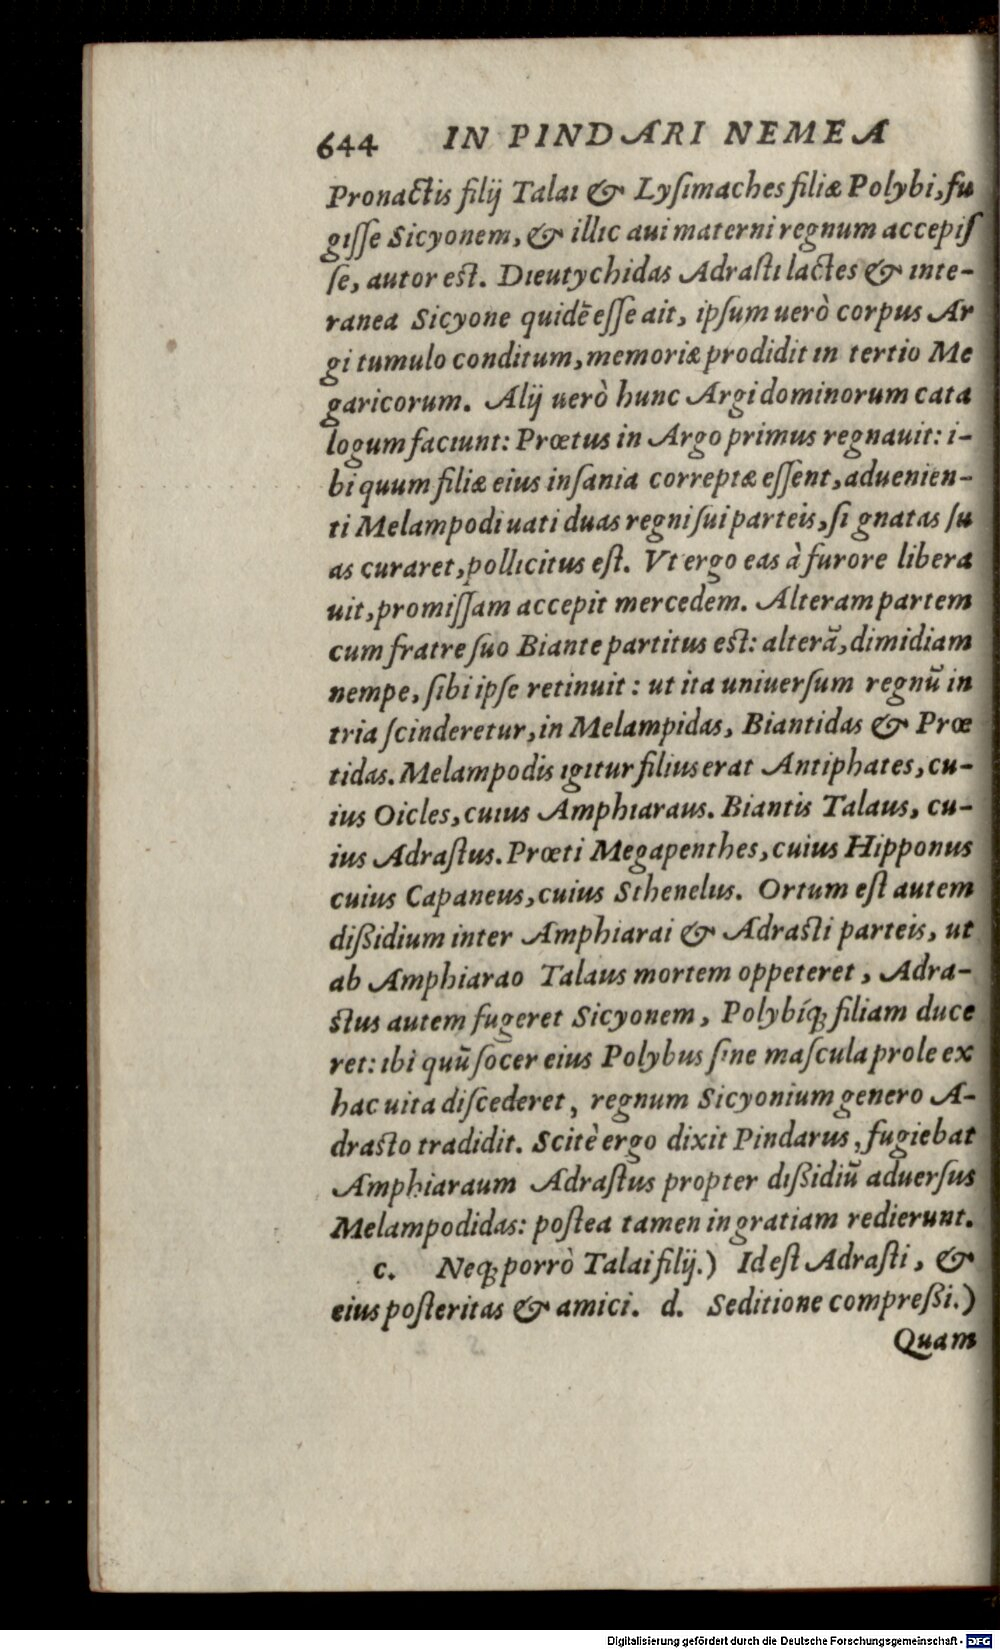 644 IN PINDARI NEMEA
Pronactis filij Talai & Lysimaches filiæ Polybi, fu
gisse Sicyonem, & illic aui materni regnum accepis
se, autor est. Dieutychidas Adrasti lactes & inte-
ranea Sicyone quidē esse ait, ipsum uerò corpus Ar
gi tumulo conditum, memoriæ prodidit in tertio Me
garicorum. Alij uerò hunc Argi dominorum cata
logum faciunt: Prœtus in Argo primus regnauit: i-
bi quum filiæ eius insania correptæ essent, aduenien-
ti Melampodi uati duas regni sui parteis, si gnatas su
as curaret, pollicitus est. Vt ergo eas à furore libera
uit, promissam accepit mercedem. Alteram partem
cum fratre suo Biante partitus est: alterā, dimidiam
nempe, sibi ipse retinuit: ut ita uniuersum regnū in
tria scinderetur, in Melampidas, Biantidas & Prœ
tidas. Melampodis igitur filius erat Antiphates, cu-
ius Oicles, cuius Amphiaraus. Biantis Talaus, cu-
ius Adrastus. Prœti Megapenthes, cuius Hipponus
cuius Capaneus, cuius Sthenelus. Ortum est autem
dißidium inter Amphiarai & Adrasti parteis, ut
ab Amphiarao Talaus mortem oppeteret, Adra-
stus autem fugeret Sicyonem, Polybíq; filiam duce
ret: ibi quū socer eius Polybus sine mascula prole ex
hac uita discederet, regnum Sicyonium genero A-
drasto tradidit. Scitè ergo dixit Pindarus, fugiebat
Amphiaraum Adrastus propter dißidiū aduersus
Melampodidas: postea tamen in gratiam redierunt.
c. Neq; porrò Talai filij.) Id est Adrasti, &
eius posteritas & amici. d. Seditione compreßi.)
Quam
Digitalisierung gefördert durch die Deutsche Forschungsgemeinschaft - DFG